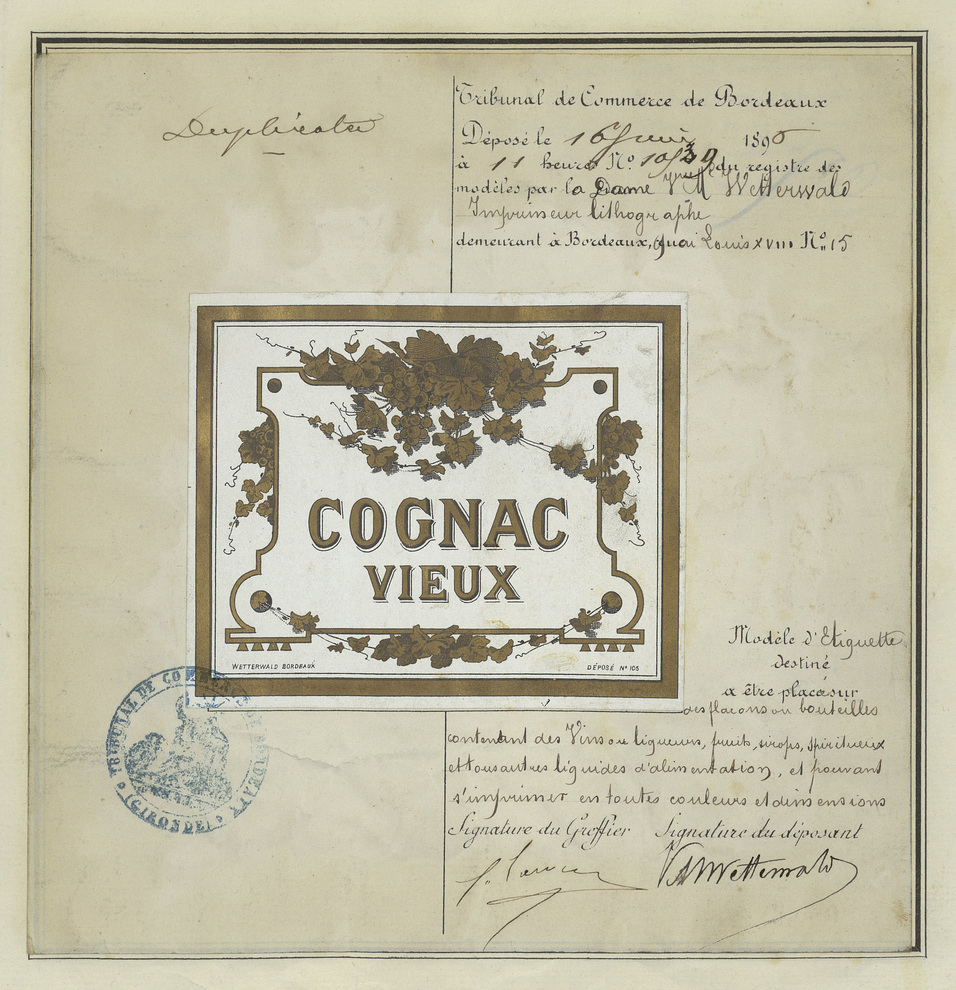 Duplicata
Tribunal de Commerce de Bordeaux
Déposé le 16 Juin 1890
à 11 heures N° 1039 du registre des
modèles par la Dame Vve M Wetterwald
Imprimeur lithographe
demeurant à Bordeaux, quai Louis XVIII N° 15
COGNAC
VIEUX
WETTERWALD BORDEAUX
DÉPOSÉ N° 105
Modèle d'Etiquette
destiné
a être placé sur
des flacons ou bouteilles
contenant des Vins ou liqueurs, fruits, sirops, spiritueux
et tous autres liquides d'alimentation, et pouvant
s'imprimer en toutes couleurs et dimensions
Signature du Greffier Signature du déposant
Vve M Wetterwald
TRIBUNAL DE COMMERCE DE BORDEAUX
(GIRONDE)